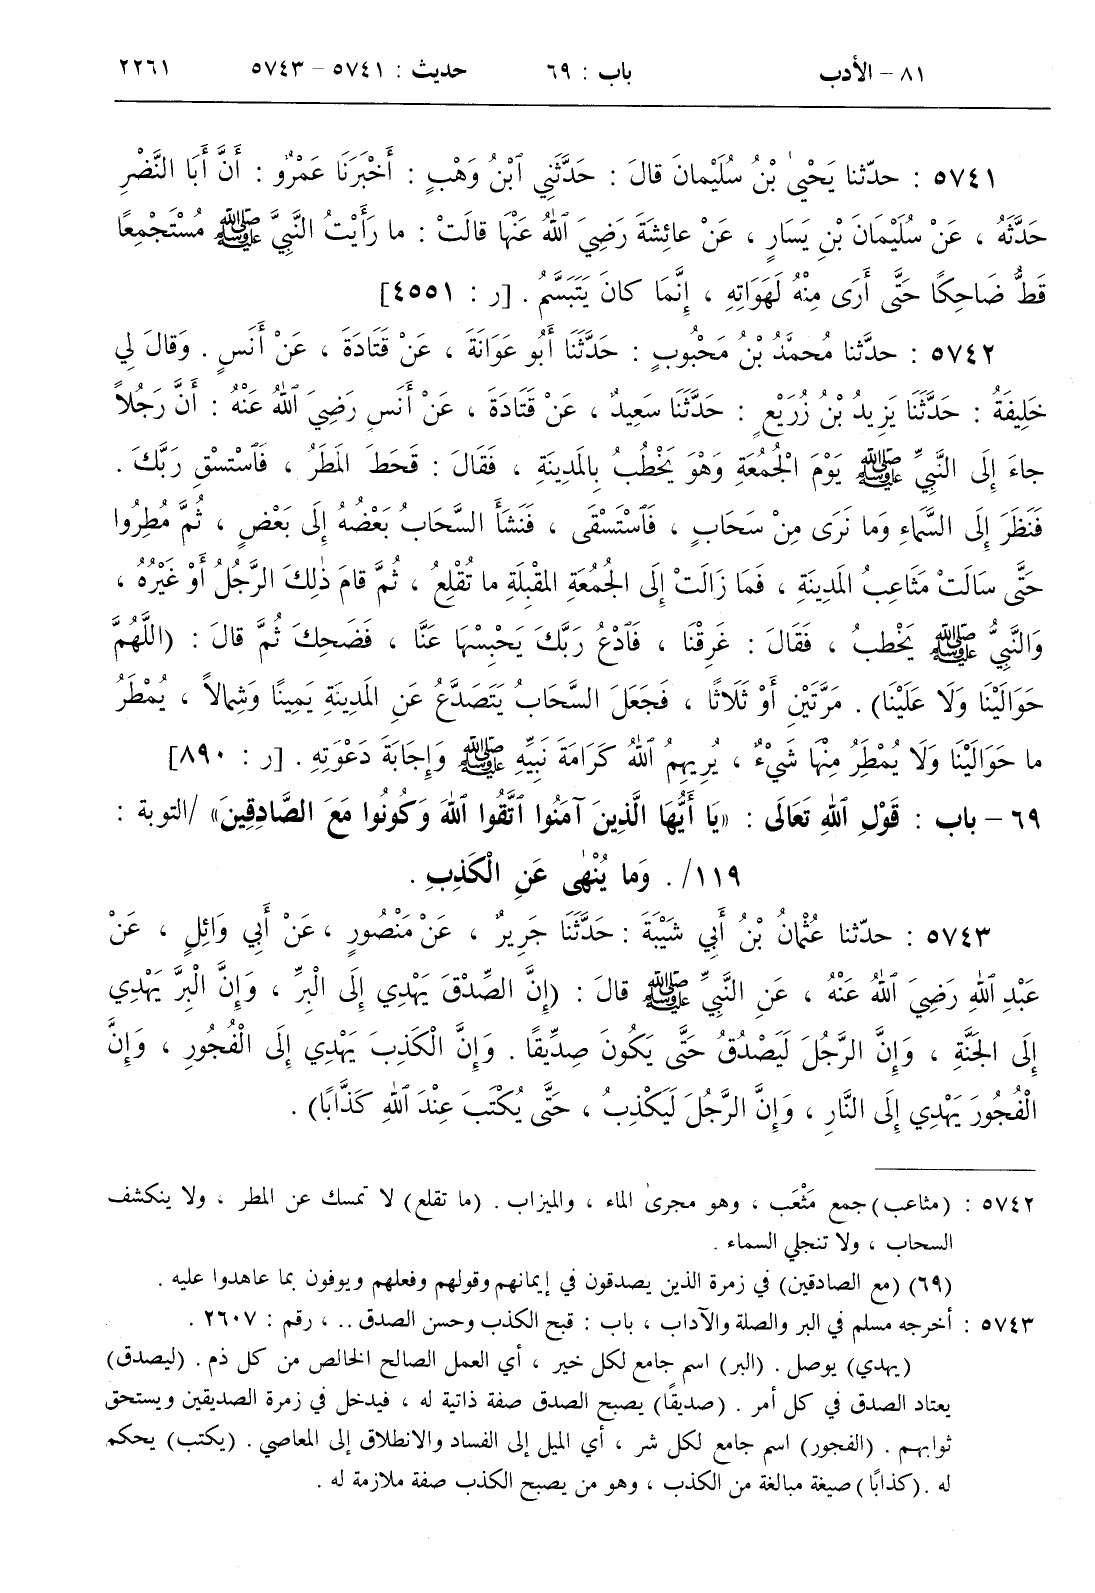 ٨١ - الأدب باب : ٦٩ حديث : ٥٧٤١ - ٥٧٤٣ ٢٢٦١
٥٧٤١ : حدّثنا يَحْيىٰ بْنُ سُلَيْمانَ قالَ : حَدَّثَنِي ٱبْنُ وَهْبٍ : أَخْبَرَنَا عَمْرٌو : أَنَّ أَبَا النَّضْرِ
حَدَّثَهُ ، عَنْ سُلَيْمَانَ بْنِ يَسَارٍ ، عَنْ عائِشَةَ رَضِيَ ٱللهُ عَنْهَا قالَتْ : ما رَأَيْتُ النَّبِيَّ ﷺ مُسْتَجْمِعًا
قَطُّ ضَاحِكًا حَتَّى أَرَى مِنْهُ لَهَوَاتِهِ ، إِنَّمَا كانَ يَتَبَسَّمُ . [ر : ٤٥٥١]
٥٧٤٢ : حدّثنا مُحمَّدُ بْنُ مَحْبُوبٍ : حَدَّثَنَا أَبُو عَوَانَةَ ، عَنْ قَتَادَةَ ، عَنْ أَنَسٍ . وَقالَ لِي
خَلِيفَةُ : حَدَّثَنَا يَزِيدُ بْنُ زُرَيْعٍ : حَدَّثَنَا سَعِيدٌ ، عَنْ قَتَادَةَ ، عَنْ أَنَسٍ رَضِيَ ٱللهُ عَنْهُ : أَنَّ رَجُلاً
جاءَ إِلَى النَّبِيِّ ﷺ يَوْمَ الْجُمُعَةِ وَهْوَ يَخْطُبُ بِالمَدِينَةِ ، فَقَالَ : قَحَطَ المَطَرُ ، فَٱسْتَسْقِ رَبَّكَ .
فَنَظَرَ إِلَى السَّمَاءِ وَما نَرَى مِنْ سَحَابٍ ، فَٱسْتَسْقَى ، فَنَشَأَ السَّحَابُ بَعْضُهُ إِلَى بَعْضٍ ، ثُمَّ مُطِرُوا
حَتَّى سَالَتْ مَثَاعِبُ المَدِينَةِ ، فَمَا زَالَتْ إِلَى الجُمُعَةِ المُقْبِلَةِ ما تُقْلِعُ ، ثُمَّ قامَ ذٰلِكَ الرَّجُلُ أَوْ غَيْرُهُ ،
وَالنَّبِيُّ ﷺ يَخْطبُ ، فَقَالَ : غَرِقْنَا ، فَٱدْعُ رَبَّكَ يَحْبِسْهَا عَنَّا ، فَضَحِكَ ثُمَّ قالَ : (اللَّهُمَّ
حَوَالَيْنَا وَلَا عَلَيْنَا) . مَرَّتَيْنِ أَوْ ثَلَاثًا ، فَجَعَلَ السَّحَابُ يَتَصَدَّعُ عَنِ المَدِينَةِ يَمِينًا وَشِمالاً ، يُمْطَرُ
ما حَوَالَيْنَا وَلَا يُمْطِرُ مِنْهَا شَيْءٌ ، يُرِيهِمُ ٱللهُ كَرَامَةَ نَبِيِّهِ ﷺ وَإِجَابَةَ دَعْوَتِهِ . [ر : ٨٩٠]
٦٩ - باب : قَوْلِ ٱللهِ تَعَالَى : «يَا أَيُّهَا الَّذِينَ آمَنُوا ٱتَّقُوا ٱللهَ وَكُونُوا مَعَ الصَّادِقِينَ» /التوبة :
١١٩/ . وَما يُنْهٰى عَنِ الْكَذِبِ .
٥٧٤٣ : حدّثنا عُثْمانُ بْنُ أَبِي شَيْبَةَ : حَدَّثَنَا جَرِيرٌ ، عَنْ مَنْصُورٍ ، عَنْ أَبِي وَائِلٍ ، عَنْ
عَبْدِ ٱللهِ رَضِيَ ٱللهُ عَنْهُ ، عَنِ النَّبِيِّ ﷺ قالَ : (إِنَّ الصِّدْقَ يَهْدِي إِلَى الْبِرِّ ، وَإِنَّ الْبِرَّ يَهْدِي
إِلَى الجَنَّةِ ، وَإِنَّ الرَّجُلَ لَيَصْدُقُ حَتَّى يَكُونَ صِدِّيقًا . وَإِنَّ الْكَذِبَ يَهْدِي إِلَى الْفُجُورِ ، وَإِنَّ
الْفُجُورَ يَهْدِي إِلَى النَّارِ ، وَإِنَّ الرَّجُلَ لَيَكْذِبُ ، حَتَّى يُكْتَبَ عِنْدَ ٱللهِ كَذَّابًا) .
٥٧٤٢ : (مثاعب) جمع مَثْعَب ، وهو مجرىٰ الماء ، والميزاب . (ما تقلع) لا تمسك عن المطر ، ولا ينكشف
السحاب ، ولا تنجلي السماء .
(٦٩) (مع الصادقين) في زمرة الذين يصدقون في إيمانهم وقولهم وفعلهم ويوفون بما عاهدوا عليه .
٥٧٤٣ : أخرجه مسلم في البر والصلة والآداب ، باب : قبح الكذب وحسن الصدق .. ، رقم : ٢٦٠٧ .
(يهدي) يوصل . (البر) اسم جامع لكل خير ، أي العمل الصالح الخالص من كل ذم . (ليصدق)
يعتاد الصدق في كل أمر . (صديقًا) يصبح الصدق صفة ذاتية له ، فيدخل في زمرة الصديقين ويستحق
ثوابهم . (الفجور) اسم جامع لكل شر ، أي الميل إلى الفساد والانطلاق إلى المعاصي . (يكتب) يحكم
له . (كذابًا) صيغة مبالغة من الكذب ، وهو من يصبح الكذب صفة ملازمة له .